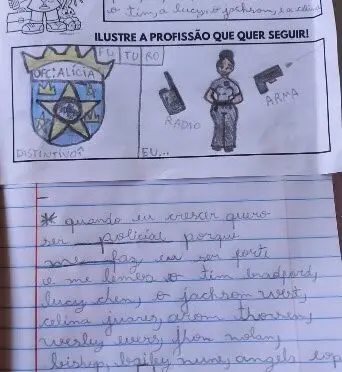 o tim, a lucy, o jackson, e a celina
ILUSTRE A PROFISSÃO QUE QUER SEGUIR!
FU TU RO
OFC: ALÍCIA
RADIO
ARMA
DISTINTIVO
EU...
* quando eu crescer quero
ser policial porque
me faz eu ser forti
e me lembra o tim bradford,
lucy chen, o jackson west,
celina juarez, aron thorsen,
wesley evers, jhon nolan,
bishop, bailey nune, angela lop